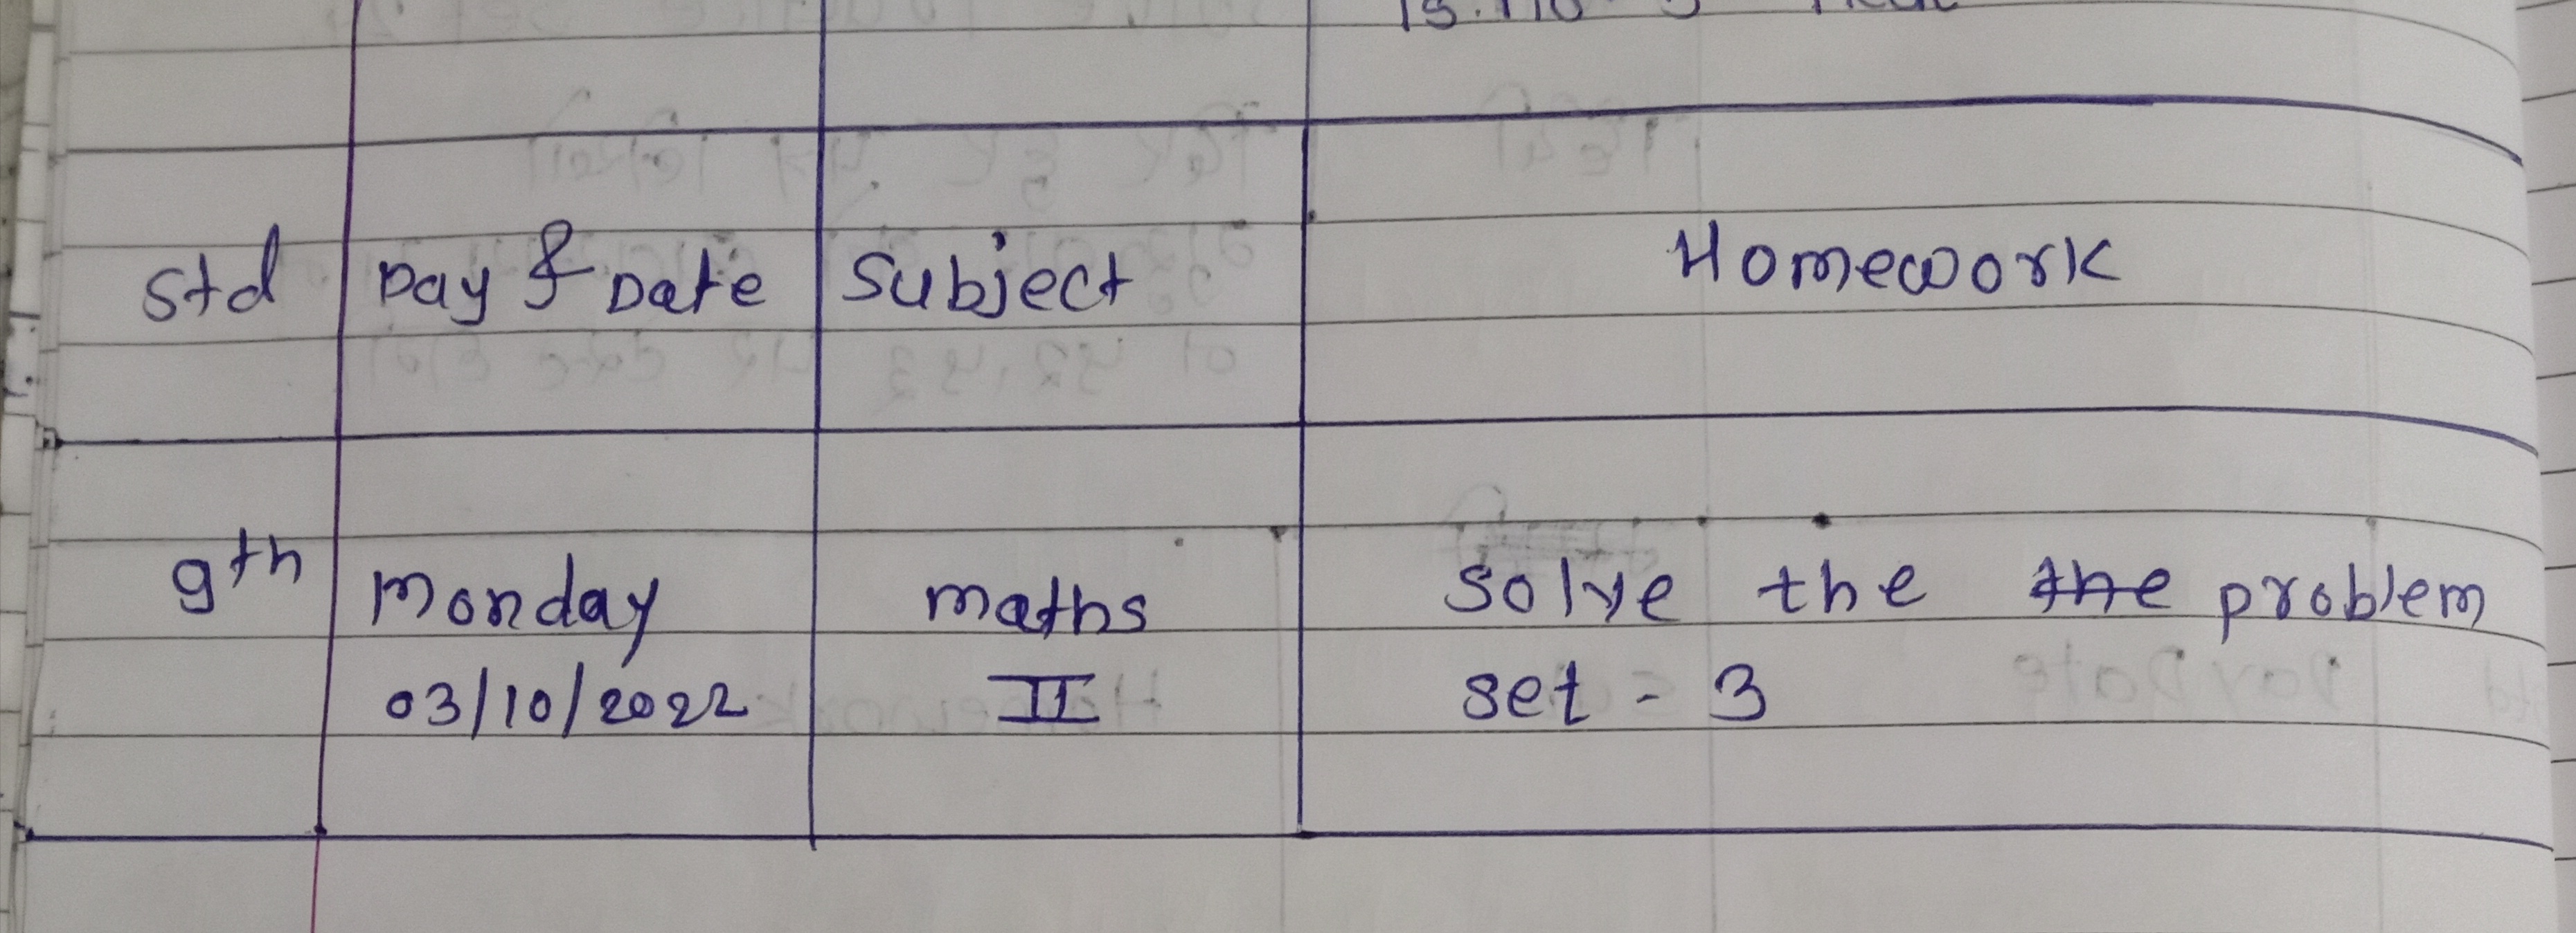 Std Day & Date Subject Homework
9th Monday maths solve the the problem
03/10/2022 II set - 3